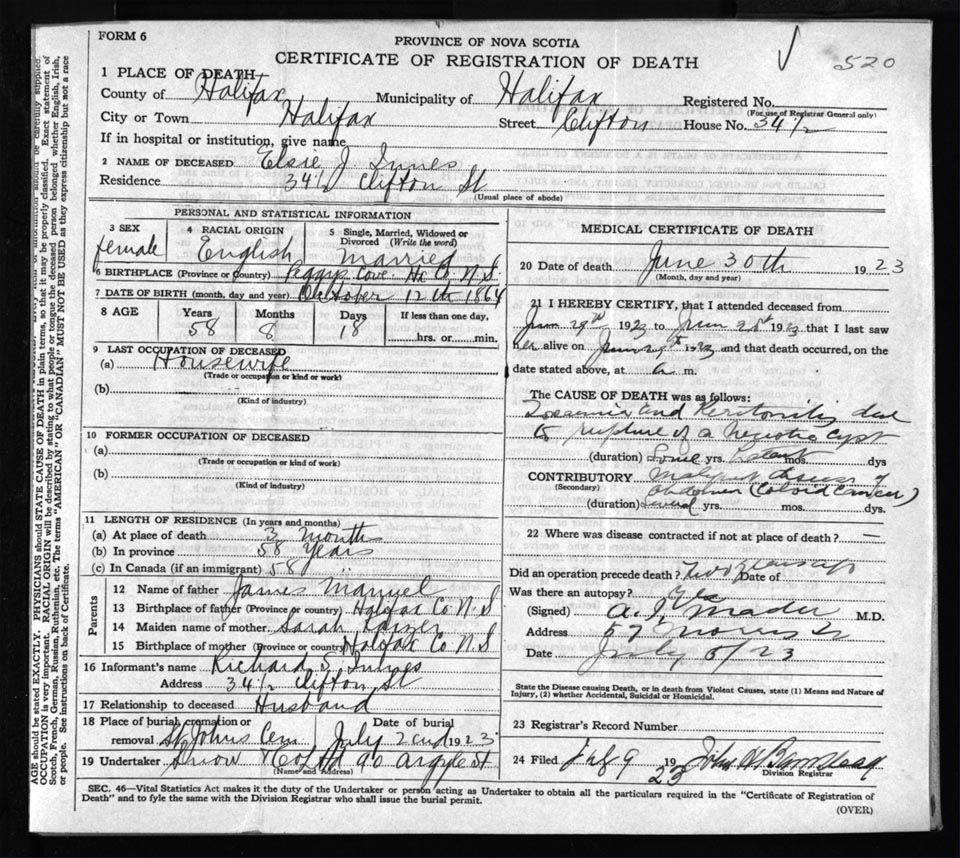 FORM 6
PROVINCE OF NOVA SCOTIA
CERTIFICATE OF REGISTRATION OF DEATH
520
1 PLACE OF DEATH
County of Halifax Municipality of Halifax Registered No.
(For use of Registrar General only)
City or Town Halifax Street Clifton House No. 34½
If in hospital or institution, give name
2 NAME OF DECEASED Elsie J. Innes
Residence 34½ Clifton St
(Usual place of abode)
PERSONAL AND STATISTICAL INFORMATION
3 SEX 4 RACIAL ORIGIN 5 Single, Married, Widowed or Divorced (Write the word)
female English Married
6 BIRTHPLACE (Province or Country) Peggys Cove Hx Co. N.S.
7 DATE OF BIRTH (month, day and year) October 12th 1864
8 AGE Years Months Days If less than one day,
58 8 18 hrs. or min.
9 LAST OCCUPATION OF DECEASED
(a) Housewife
(Trade or occupation or kind or work)
(b)
(Kind of industry)
10 FORMER OCCUPATION OF DECEASED
(a)
(Trade or occupation or kind of work)
(b)
(Kind of industry)
11 LENGTH OF RESIDENCE (In years and months)
(a) At place of death 3 months
(b) In province 58 Years
(c) In Canada (if an immigrant) 58
Parents
12 Name of father James Manuel
13 Birthplace of father (Province or country) Halifax Co N.S
14 Maiden name of mother Sarah
15 Birthplace of mother (Province or country) Halifax Co N.S
16 Informant's name Richard S. Innes
Address 34½ Clifton St
17 Relationship to deceased Husband
18 Place of burial, cremation or removal St Johns Cem Date of burial July 2nd 1923
19 Undertaker Snow & Co Ltd 90 Argyle St
(Name and Address)
MEDICAL CERTIFICATE OF DEATH
20 Date of death June 30th 1923
(Month, day and year)
21 I HEREBY CERTIFY, that I attended deceased from
June 1923 to June 1923 that I last saw
her alive on June 29th 1923 and that death occurred, on the
date stated above, at a m.
The CAUSE OF DEATH was as follows:
Toxaemia and Peritonitis due
to rupture of a cyst
(duration) yrs. mos. dys
CONTRIBUTORY Malignant disease of
(Secondary) abdomen (Colloid Cancer)
(duration) several yrs. mos. dys.
22 Where was disease contracted if not at place of death? —
Did an operation precede death? Two Date of
Was there an autopsy? Yes
(Signed) A. I. Mader M.D.
Address 57 Morris St
Date July 5/23
State the Disease causing Death, or in death from Violent Causes, state (1) Means and Nature of
Injury, (2) whether Accidental, Suicidal or Homicidal.
23 Registrar's Record Number
24 Filed July 9 1923
Division Registrar
SEC. 46—Vital Statistics Act makes it the duty of the Undertaker or person acting as Undertaker to obtain all the particulars required in the "Certificate of Registration of
Death" and to fyle the same with the Division Registrar who shall issue the burial permit.
(OVER)
AGE should be stated EXACTLY. PHYSICIANS should STATE CAUSE OF DEATH in plain terms, so that it may be properly classified. Exact statement of
OCCUPATION is very important. RACIAL ORIGIN will be described by stating to what people or tongue the deceased person belonged whether English, Irish,
Scotch, French, German, Russian, Ruthenian, etc. The terms "AMERICAN" OR "CANADIAN" MUST NOT BE USED as they express citizenship but not a race
or people. See instructions on back of Certificate.